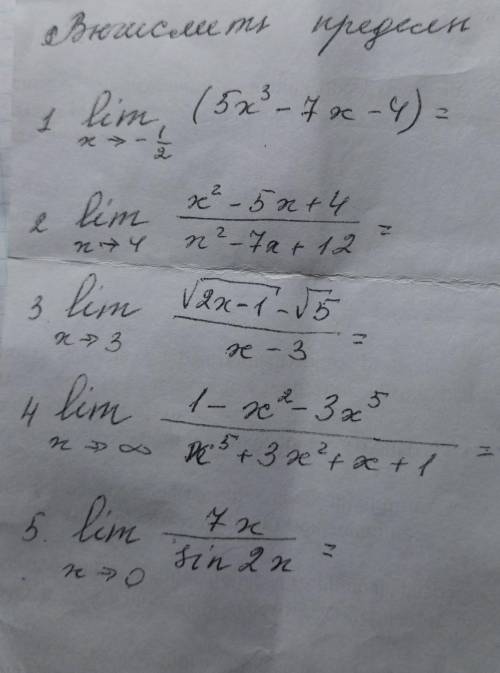 Вычислить пределы
1 lim x→-1/2 (5x³ - 7x - 4) =
2 lim x→4 (x² - 5x + 4)/(x² - 7x + 12) =
3 lim x→3 (√2x-1 - √5)/(x - 3) =
4 lim x→∞ (1 - x² - 3x⁵)/(x⁵ + 3x² + x + 1) =
5. lim x→0 7x/sin 2x =